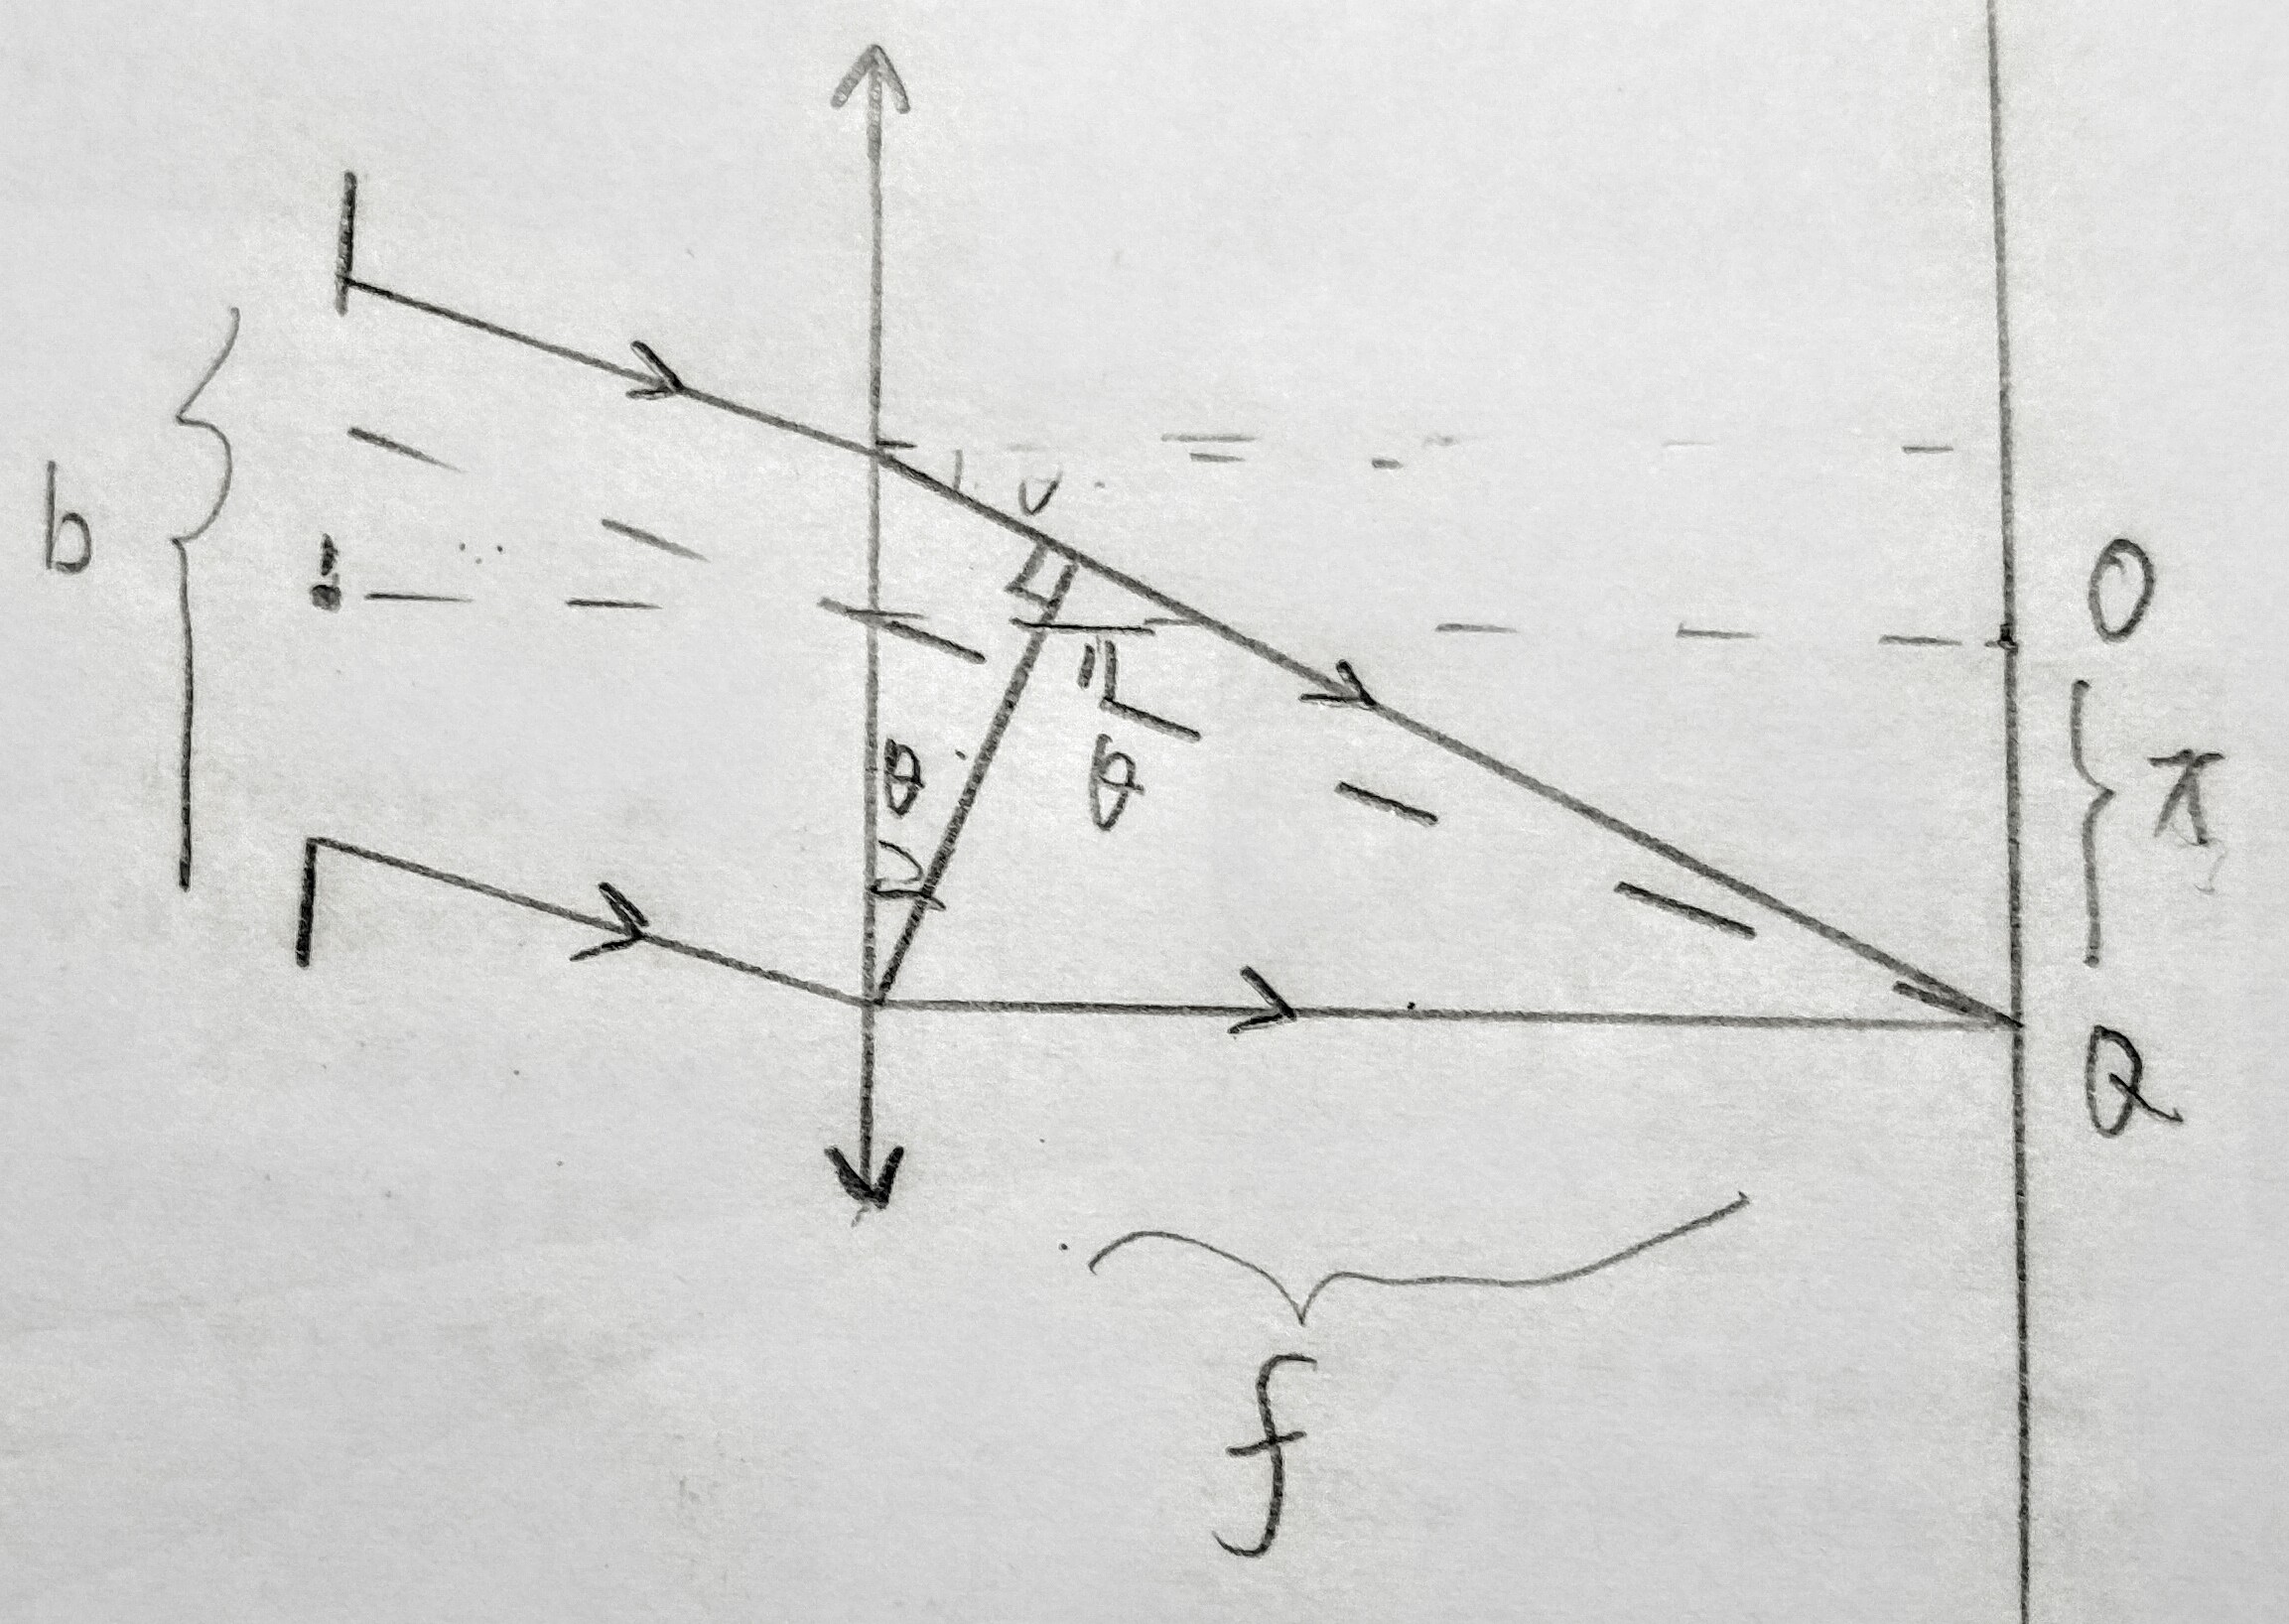 b
θ
θ
O
x
Q
f